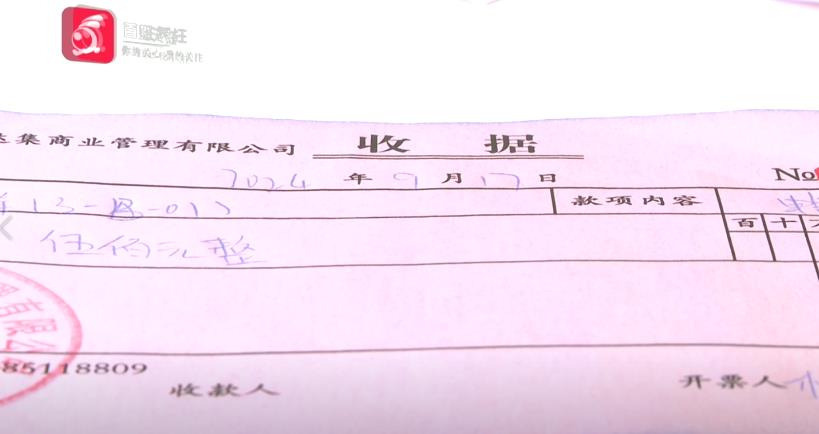 集商业管理有限公司 收 据
2024 年 9 月 17 日 No
13-B-01 款项内容
伍佰元整 百 十
有限公
85118809
收款人 开票人